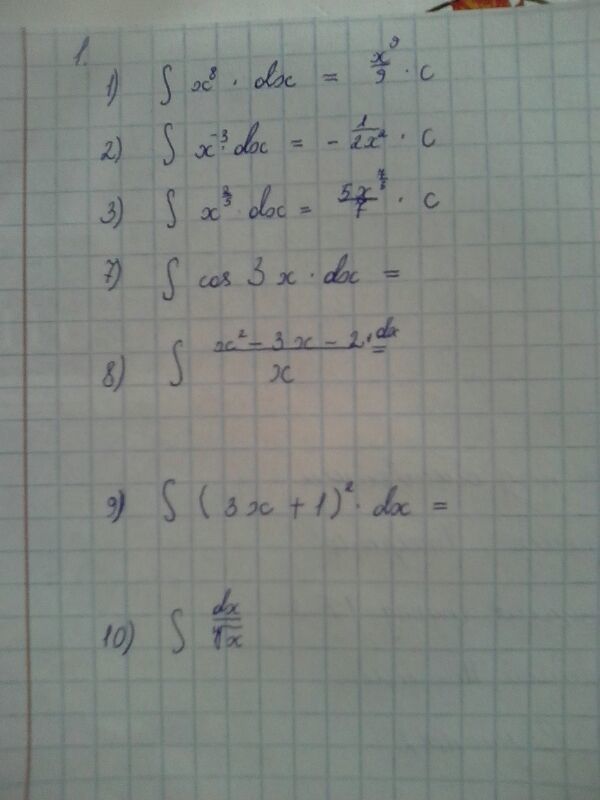 1.
1) ∫ x⁸ · dx = x⁹/9 · c
2) ∫ x⁻³ · dx = - 1/2x² · c
3) ∫ x^(2/5) · dx = 5x^(7/5)/7 · c
7) ∫ cos 3x · dx =
8) ∫ x² - 3x - 2/x · dx =
9) ∫ (3x + 1)² · dx =
10) ∫ dx/√x